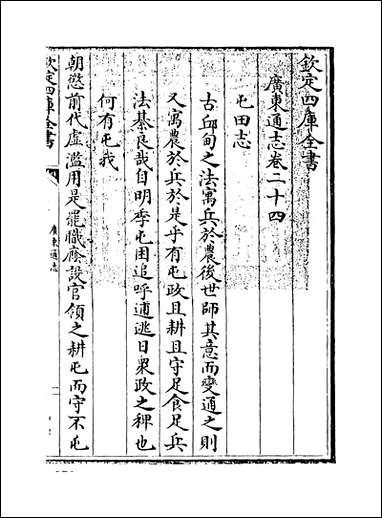 欽定四庫全書
廣東通志卷二十四
屯田志
古邱甸之法寓兵於農後世師其意而變通之則
又寓農於兵於是乎有屯政且耕且守足食足兵
法綦良哉自明季屯困追呼逋逃日衆政之稗也
何有屯我
朝懲前代虛濫用是罷職廕設官領之耕屯而守不屯
欽定四庫全書
廣東通志
一